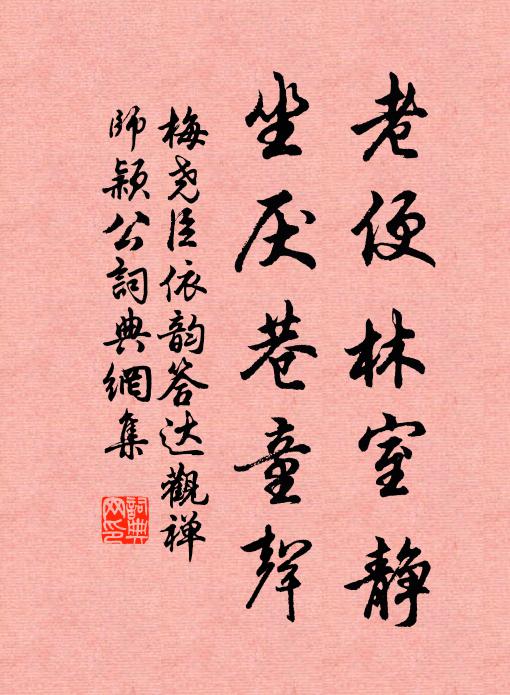 老便林室静
坐厌巷童聲
梅尧臣依韵答达觀禅
師颖公詞典網集
詞典
网印